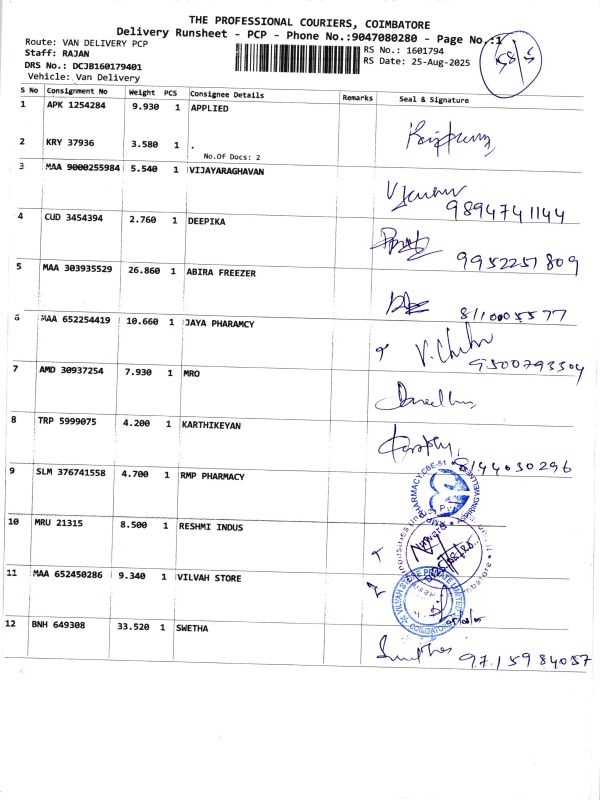 THE PROFESSIONAL COURIERS, COIMBATORE
Delivery Runsheet - PCP - Phone No.:9047080280 - Page No.:1
Route: VAN DELIVERY PCP
RS No.: 1601794
Staff: RAJAN
RS Date: 25-Aug-2025
DRS No.: DCJB160179401
Vehicle: Van Delivery
S No Consignment No Weight PCS Consignee Details Remarks Seal & Signature
1 APK 1254284 9.930 1 APPLIED
2 KRY 37936 3.580 1 .
No.Of Docs: 2
3 MAA 9000255984 5.540 1 VIJAYARAGHAVAN
9894741144
4 CUD 3454394 2.760 1 DEEPIKA
9952251809
5 MAA 303935529 26.860 1 ABIRA FREEZER
8110005577
6 MAA 652254419 10.660 1 JAYA PHARAMCY
9500793504
7 AMD 30937254 7.930 1 MRO
8 TRP 5999075 4.200 1 KARTHIKEYAN
8144030296
9 SLM 376741558 4.700 1 RMP PHARMACY
10 MRU 21315 8.500 1 RESHMI INDUS
11 MAA 652450286 9.340 1 VILVAH STORE
VILVAH STORE PRIVATE LIMITED
COIMBATORE
12 BNH 649308 33.520 1 SWETHA
9715984057